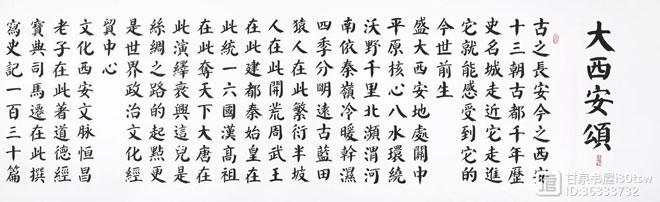 大西安頌
古之長安今之西安
十三朝古都千年歷
史名城走近它走進
它就能感受到它的
今世前生
盛大西安地處關中
平原核心八水環繞
沃野千里北瀕渭河
南依秦嶺冷暖幹濕
四季分明遠古藍田
猿人在此繁衍半坡
人在此開荒周武王
在此建都秦始皇在
此統一六國漢高祖
在此奪天下大唐在
此演繹衰興這兒是
絲綢之路的起點更
是世界政治文化經
貿中心
文化西安文脈恒昌
老子在此著道德經
寶典司馬遷在此撰
寫史記一百三十篇
甘泉书屋i39tsw
ID:36333732